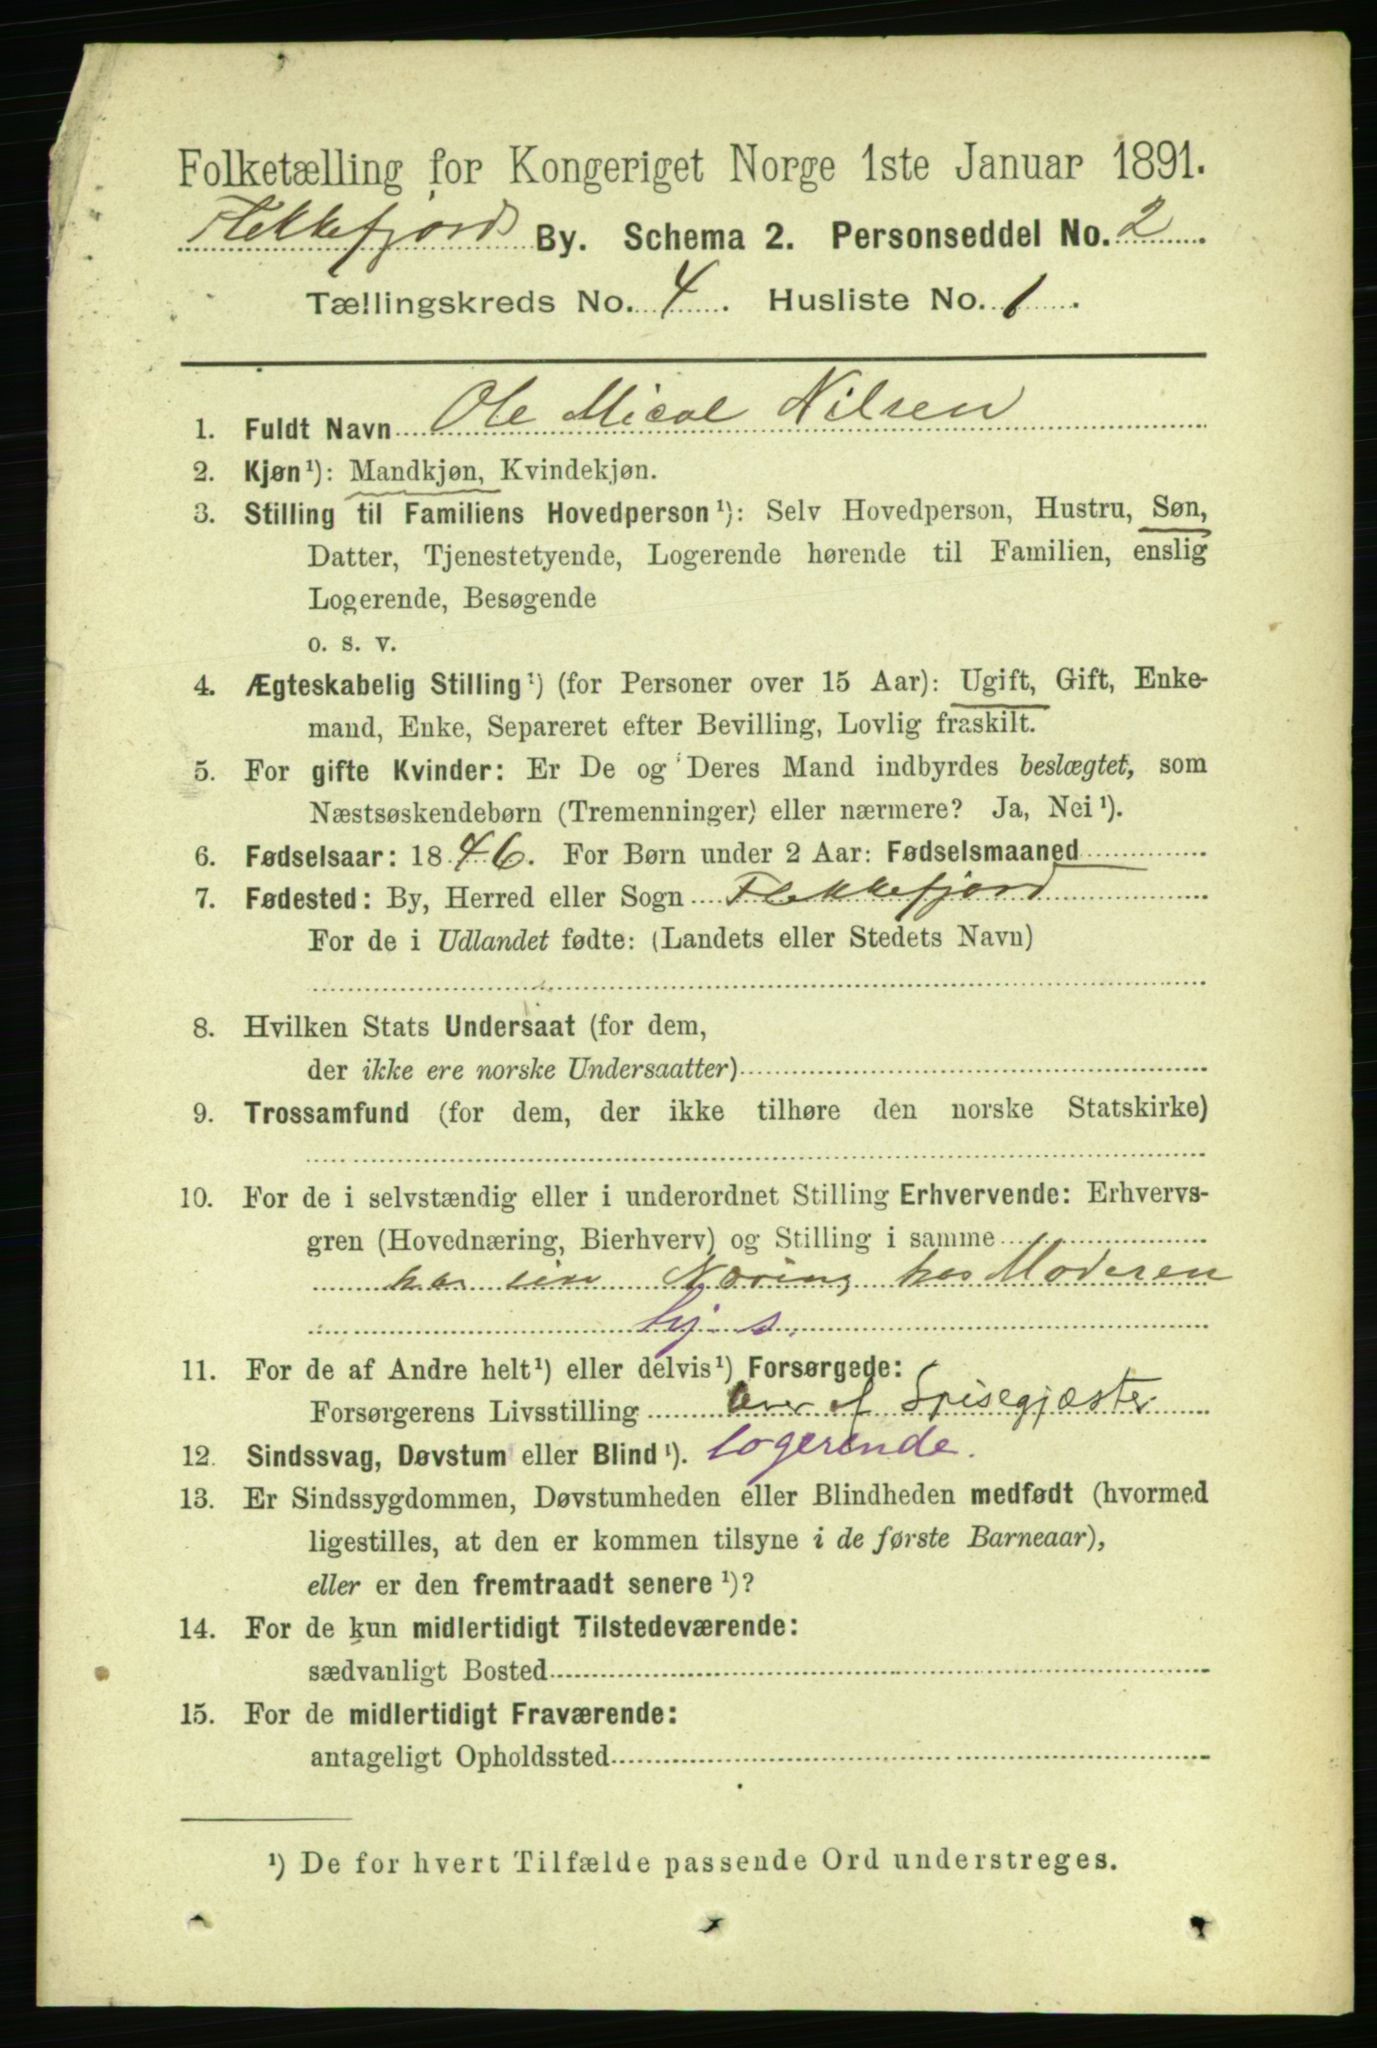 Folketælling for Kongeriget Norge 1ste Januar 1891.
Flekkefjord By. Schema 2. Personseddel No. 2
Tællingskreds No. 4. Husliste No. 1.
1. Fuldt Navn Ole Mical Nilsen
2. Kjøn¹): Mandkjøn, Kvindekjøn.
3. Stilling til Familiens Hovedperson¹): Selv Hovedperson, Hustru, Søn,
Datter, Tjenestetyende, Logerende hørende til Familien, enslig
Logerende, Besøgende
o. s. v.
4. Ægteskabelig Stilling¹) (for Personer over 15 Aar): Ugift, Gift, Enke-
mand, Enke, Separeret efter Bevilling, Lovlig fraskilt.
5. For gifte Kvinder: Er De og Deres Mand indbyrdes beslægtet, som
Næstsøskendebørn (Tremenninger) eller nærmere? Ja, Nei¹).
6. Fødselsaar: 1846. For Børn under 2 Aar: Fødselsmaaned
7. Fødested: By, Herred eller Sogn Flekkefjord
For de i Udlandet fødte: (Landets eller Stedets Navn)
8. Hvilken Stats Undersaat (for dem,
der ikke ere norske Undersaatter)
9. Trossamfund (for dem, der ikke tilhøre den norske Statskirke)
10. For de i selvstændig eller i underordnet Stilling Erhvervende: Erhvervs-
gren (Hovednæring, Bierhverv) og Stilling i samme
har sin Næring hos Moderen
11. For de af Andre helt¹) eller delvis¹) Forsørgede:
Forsørgerens Livsstilling lever af Spisegjæster
12. Sindssvag, Døvstum eller Blind¹). logerende.
13. Er Sindssygdommen, Døvstumheden eller Blindheden medfødt (hvormed
ligestilles, at den er kommen tilsyne i de første Barneaar),
eller er den fremtraadt senere¹)?
14. For de kun midlertidigt Tilstedeværende:
sædvanligt Bosted
15. For de midlertidigt Fraværende:
antageligt Opholdssted
¹) De for hvert Tilfælde passende Ord understreges.